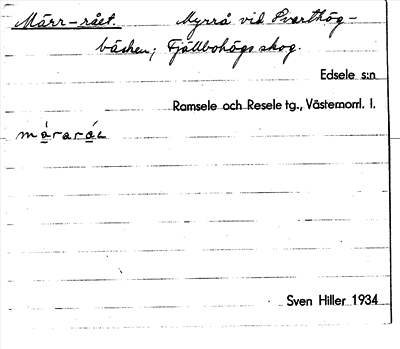 Märr-rået. Myrrå vid Svarthög-
bäcken; Fjällbohögs skog.
Edsele s:n
Ramsele och Resele tg., Västernorrl. l.
Sven Hiller 1934